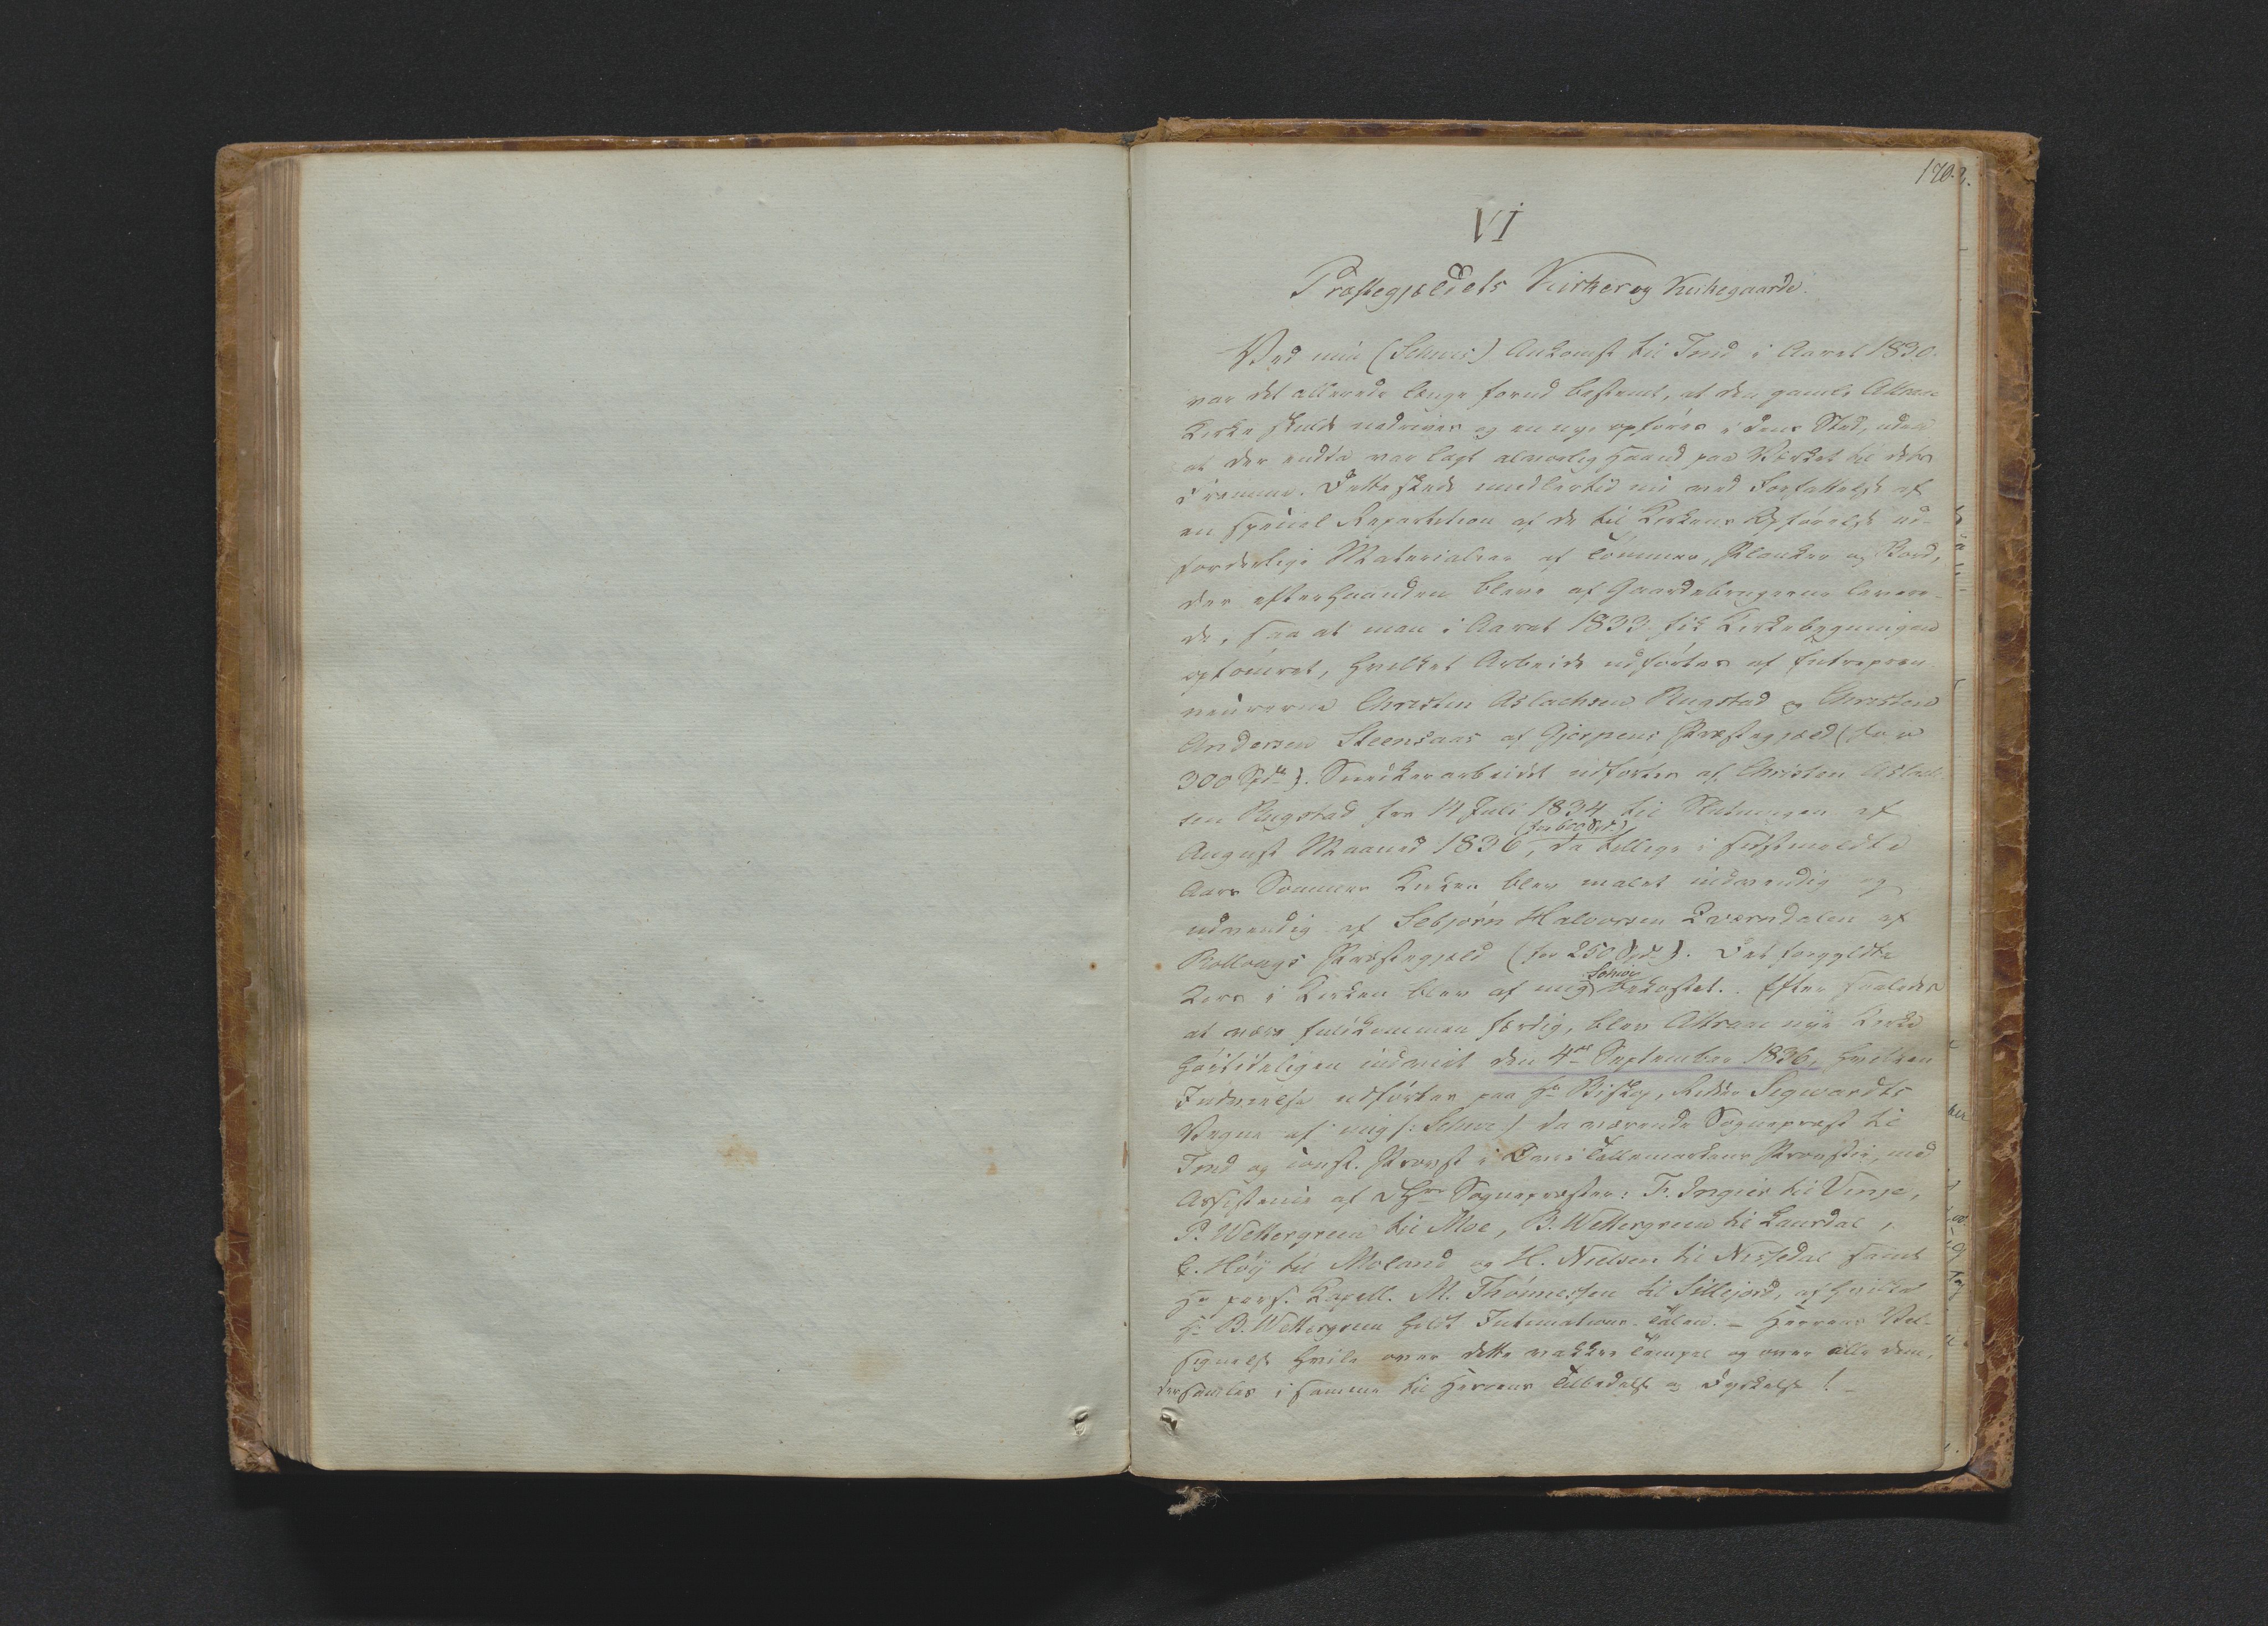 170.a.
VI
Præstegjeldets Kirker og Kirkegaarde.
Ved min (Schives) Ankomst til Tind i Aaret 1830.
var det allerede længe forud bestemt, at den gamle Attraae
Kirke skulde nedrives og en nye opføres i dens Sted, uden
at der endda var lagt alvorlig Haand paa Værket til dets
Fremme. Dette skede imidlertid nu ved Forfattelse af
en special Repartition af de til Kirkens Opførelse ud-
fordrelige Materialier af Tømmer, Planker og Bord,
der efterhaanden bleve af Gaardebrugerne levere-
de, saa at man i Aaret 1833 fik Kirkebygningen
optømret, hvilket Arbeide udførtes af Entrepren-
neurerne Christen Aslachsen Rugstad og Christen
Andersen Steensaas af Gjerpens Præstegjeld (for
300 Spd). Snedkerarbeidet udførtes af Christen Aslach-
sen Rugstad fra 14 Juli 1834 til Slutningen af
August Maaned 1836 (for 600 Spd.), da tillige i sidstmeldte
Aars Sommer Kirken blev malet indvendig og
udvendig af Sebjørn Halvorsen Qværndalen af
Rollougs Præstegjeld (for 250 Spd.). Det forgyldte
Kors i Kirken blev af mig Schive bekostet. Efter saaledes
at være fuldkommen færdig, blev Attraae nye Kirke
høitideligen indviet den 4de September 1836, hvilken
Indvielse udførtes paa Hr. Biskop, Ridder Sigwardts
Vegne af mig (: Schive) da værende Sognepræst til
Tind og const. Provst i Øvre Tellemarkens Provstie, med
Assistence af DHrr. Sognepræster: F. Ingier til Vinje,
P. Wettergreen til Moe, B. Wettergreen til Laurdal,
E. Høy til Moland og H. Nielsen til Nissedal samt
Hr. pers. Kapell. M. Thønnessen til Sillejord, af hvilke
Hr. B. Wettergreen holdt Intimations-Talen. – Herrens Vel-
signelse hvile over dette vakkre Tempel og over alle dem,
der samles i samme til Herrens Tilbedelse og Dyrkelse! –